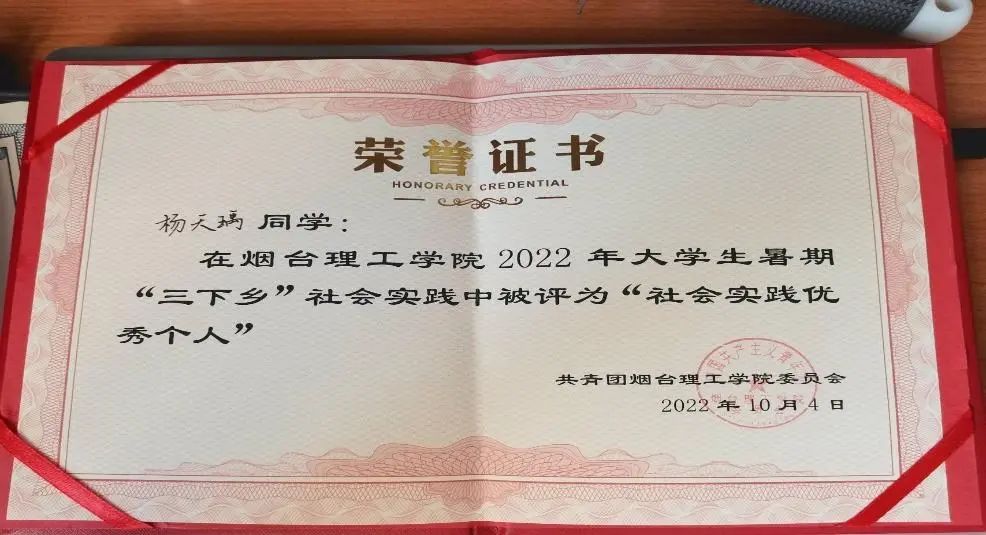 荣誉证书
HONORARY CREDENTIAL
杨天瑀 同学：
在烟台理工学院 2022 年大学生暑期
“三下乡”社会实践中被评为“社会实践优
秀个人”
共青团烟台理工学院委员会
2022 年 10 月 4 日